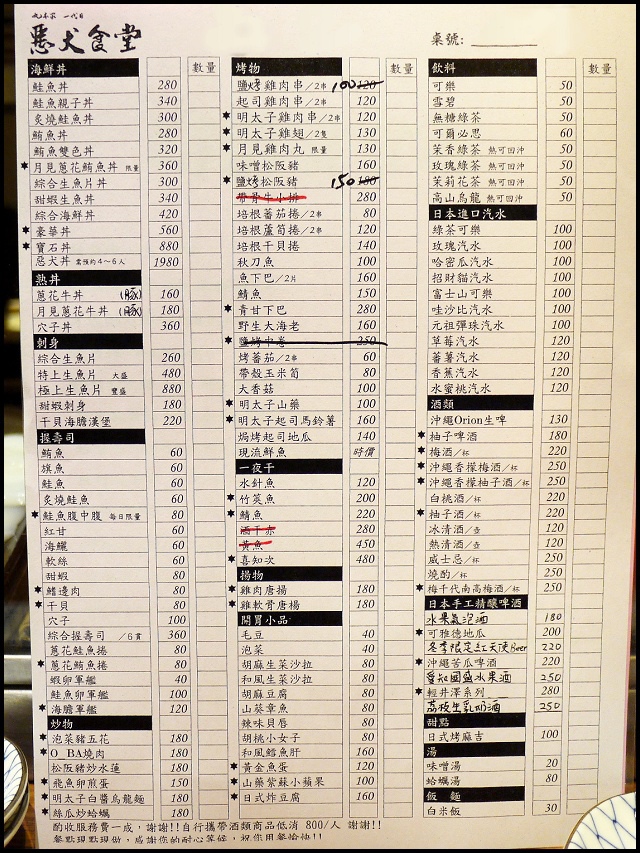 一代目
惡犬食堂
桌號:
海鮮丼 數量
鮭魚丼 280
鮭魚親子丼 340
炙燒鮭魚丼 300
鮪魚丼 280
鮪魚雙色丼 320
★月見蔥花鮪魚丼 限量 360
綜合生魚片丼 300
甜蝦生魚丼 340
綜合海鮮丼 420
★豪華丼 560
★寶石丼 880
惡犬丼 需預約4~6人 1980
熟丼
蔥花牛丼 (豚) 160
月見蔥花牛丼 (豚) 180
穴子丼 360
刺身
綜合生魚片 260
特上生魚片 大盛 480
極上生魚片 豐盛 880
甜蝦刺身 180
干貝海膽漢堡 220
握壽司
鮪魚 60
旗魚 60
鮭魚 60
炙燒鮭魚 60
★鮭魚腹中腹 每日限量 80
紅甘 60
海鱺 60
軟絲 60
甜蝦 80
★鰭邊肉 80
★干貝 80
穴子 100
綜合握壽司 /6貫 360
蔥花鮭魚捲 80
★蔥花鮪魚捲 80
蝦卵軍艦 40
鮭魚卵軍艦 100
★海膽軍艦 120
炒物
★泡菜豬五花 180
★O BA燒肉 180
松阪豬炒水蓮 180
★飛魚卵煎蛋 150
★明太子白醬烏龍麵 180
★絲瓜炒蛤蠣 180
烤物 數量
鹽烤雞肉串/2串 100 120
起司雞肉串/2串 120
★明太子雞肉串/2串 120
★明太子雞翅/2隻 130
★月見雞肉丸 限量 130
味噌松阪豬 160
★鹽烤松阪豬 150 180
帶骨牛小排 280
培根蕃茄捲/2串 80
培根蘆筍捲/2串 120
培根干貝捲 140
秋刀魚 100
魚下巴/2片 160
鯖魚 150
★青甘下巴 280
野生大海老 160
★鹽烤中卷 250
烤蕃茄/2串 60
帶殼玉米筍 80
大香菇 100
★明太子山藥 100
★明太子起司馬鈴薯 160
焗烤起司地瓜 140
現流鮮魚 時價
一夜干
水針魚 120
★竹筴魚 200
★鯖魚 220
酒干赤 280
黃魚 450
★喜知次 480
揚物
★雞肉唐揚 180
★雞軟骨唐揚 180
開胃小品
毛豆 40
泡菜 40
胡麻生菜沙拉 80
和風生菜沙拉 80
胡麻豆腐 80
山葵章魚 80
辣味貝唇 80
胡桃小女子 80
和風鱈魚肝 160
★黃金魚蛋 120
★山藥紫蘇小蘋果 100
★日式炸豆腐 160
飲料 數量
可樂 50
雪碧 50
無糖綠茶 50
可爾必思 60
茉香綠茶 熱可回沖 50
玫瑰綠茶 熱可回沖 50
茉莉花茶 熱可回沖 50
高山烏龍 熱可回沖 50
日本進口汽水
綠茶可樂 100
玫瑰汽水 100
哈密瓜汽水 100
招財貓汽水 100
富士山可樂 100
哇沙比汽水 100
元祖彈珠汽水 100
草莓汽水 120
蕃薯汽水 120
香蕉汽水 120
水蜜桃汽水 120
酒類
沖繩Orion生啤 130
★柚子啤酒 180
★梅酒/杯 220
★沖繩香檬梅酒/杯 250
★沖繩香檬柚子酒/杯 250
白桃酒/杯 220
★柚子酒/杯 220
冰清酒/壺 120
熱清酒/壺 120
威士忌/杯 250
燒酌/杯 250
★梅千代南高梅酒/杯 250
日本手工精釀啤酒
水果氣泡酒 180
★可雅德地瓜 200
冬季限定紅天使Beer 220
★沖繩苦瓜啤酒 220
愛知國盛水果酒 250
★輕井澤系列 280
荔枝生乳奶酒 250
甜點
日式烤麻吉 100
湯
味噌湯 20
蛤蠣湯 80
飯 麵
白米飯 30
酌收服務費一成,謝謝!!自行攜帶酒類商品低消 800/人 謝謝!!
餐點現點現做,感謝您的耐心等候,祝你用餐愉快!!